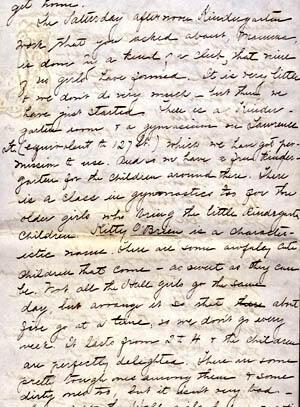 get home.
The Saturday afternoon Kindergarten
work that you asked about, Mamma,
is done by a kind of club that nine
of us girls have formed. It is very little
& we don't do very much – but then we
have just started. There is a Kinder-
garten room & a gymnasium on Lawrence
St. (equivalent to 127 St.) which we have got per-
mission to use. And so we have a free Kinder-
garten for the children around there. There
is a class in gymnastics too for the
older girls who bring the little Kindergarten
children. Kitty O'Brien is a character-
istic name. There are some awfully cute
children that come – as sweet as they can
be. Not all the girls go the same
day, but arrange it so that about
five go at a time, so we don't go every
week. It lasts from 2 to 4 & the children
are perfectly delighted. There are some
pretty tough ones among them & some
dirty ones too, but it isn't very bad –